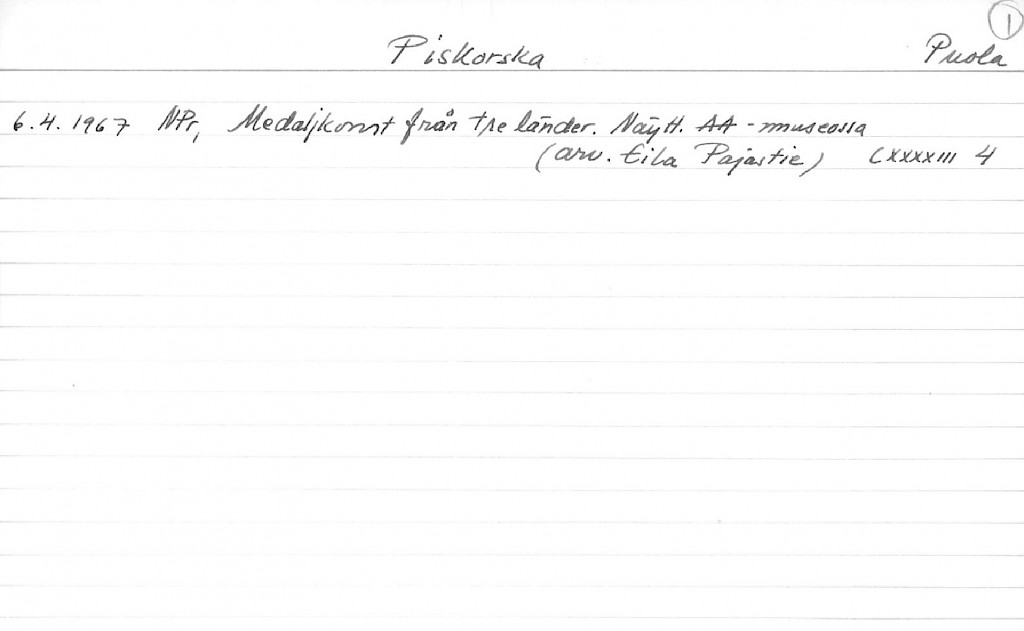 1
Piskorska Puola
6.4.1967 NPr, Medaljkonst från tre länder. Näytt. AA-museossa
(arv. Eila Pajastie) CXXXXIII 4